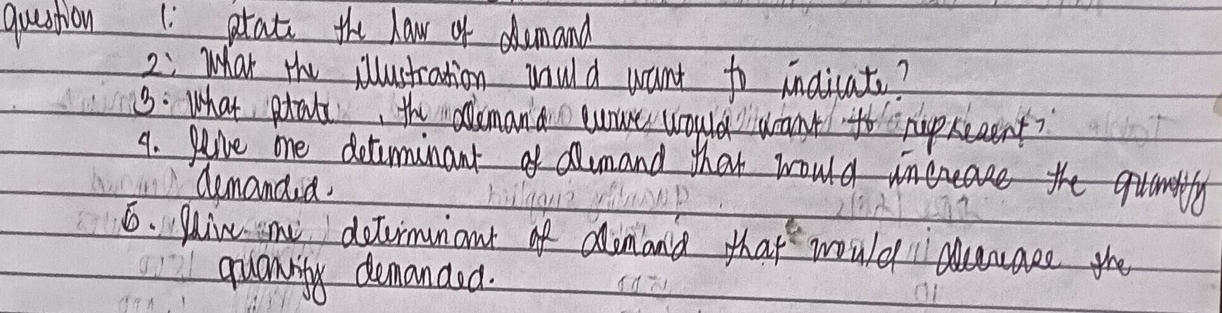 question 1: State the law of demand
2: What the illustration would want to indicate?
3: What state, the demand curve would want to represent?
4. Give one determinant of demand that would increase the quantity
demanded.
5. Give one determinant of demand that would decrease the
quantity demanded.